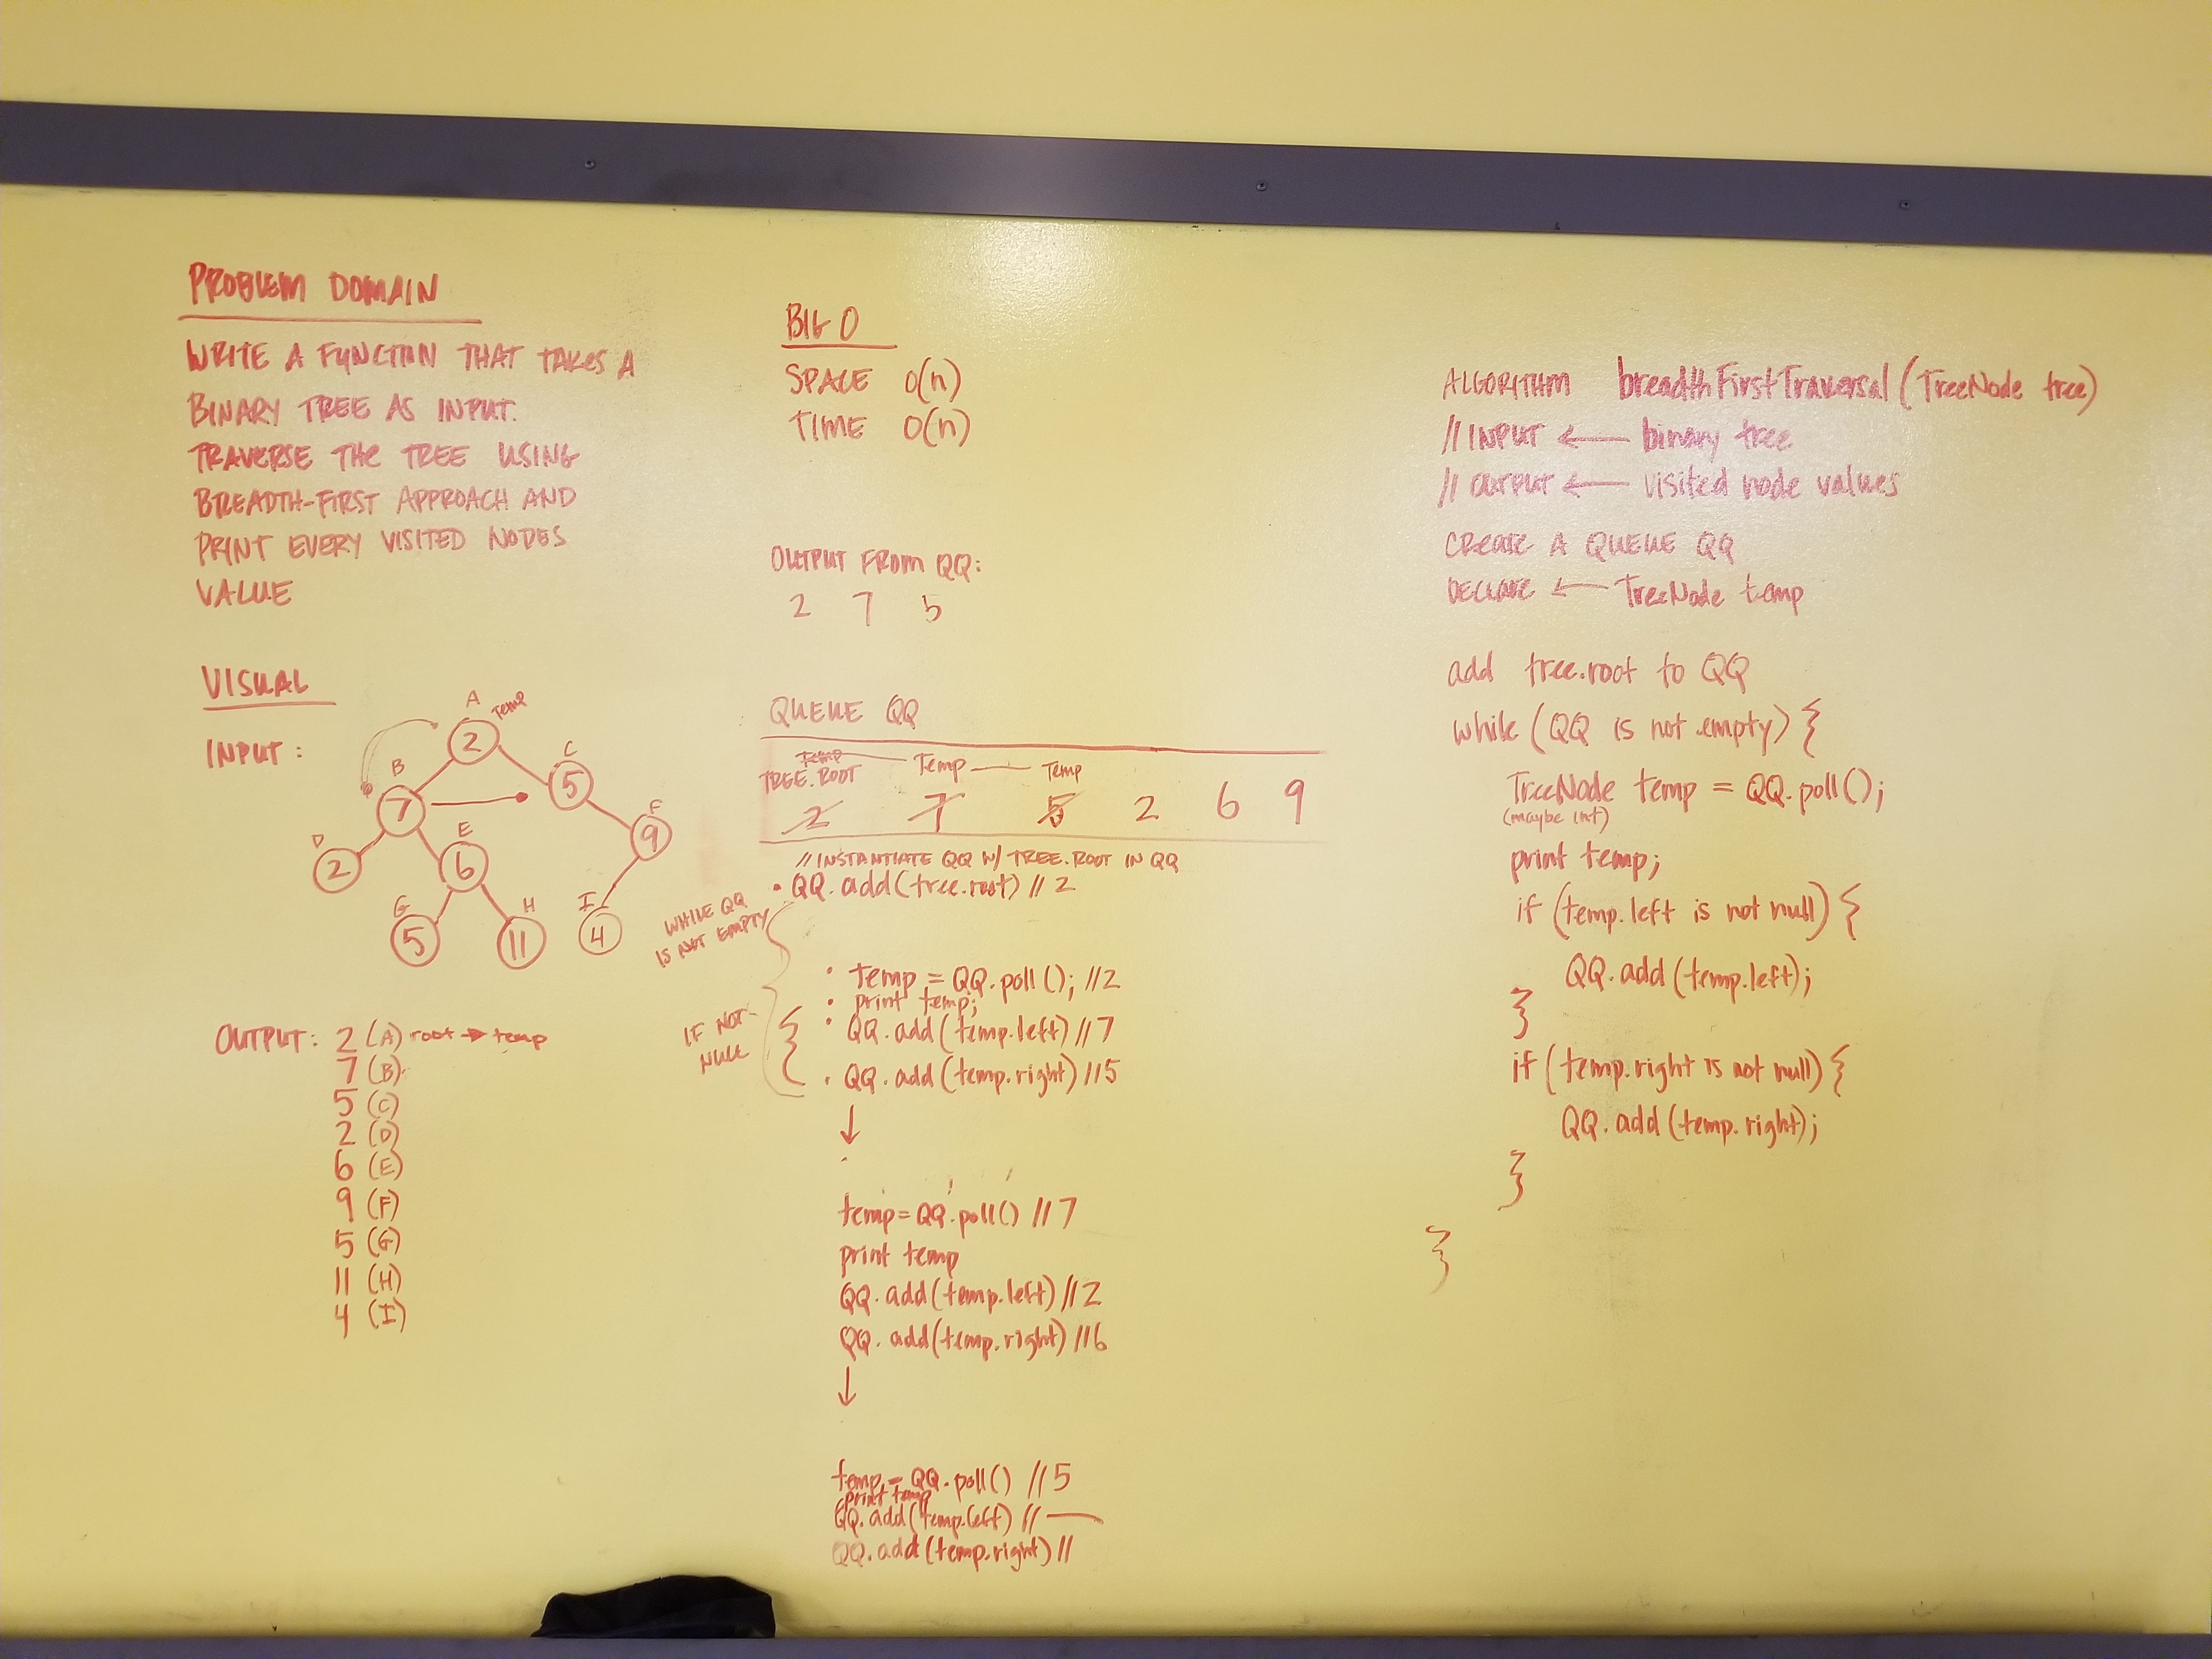 PROBLEM DOMAIN
WRITE A FUNCTION THAT TAKES A
BINARY TREE AS INPUT.
TRAVERSE THE TREE USING
BREADTH-FIRST APPROACH AND
PRINT EVERY VISITED NODES
VALUE
VISUAL
INPUT:
A
Temp
2
B
C
7
5
D
E
F
2
6
9
G
H
I
5
11
4
OUTPUT: 2 (A) root → temp
7 (B)
5 (C)
2 (D)
6 (E)
9 (F)
5 (G)
11 (H)
4 (I)
BIG O
SPACE O(n)
TIME O(n)
OUTPUT FROM QQ:
2 7 5
QUEUE QQ
Temp Temp Temp
TREE.ROOT
2 7 5 2 6 9
// INSTANTIATE QQ W/ TREE.ROOT IN QQ
• QQ.add(tree.root) // 2
WHILE QQ
IS NOT EMPTY
• temp = QQ.poll(); //2
• print temp;
• QQ.add(temp.left) //7
IF NOT-
NULL
• QQ.add(temp.right) //5
↓
temp = QQ.poll() //7
print temp
QQ.add(temp.left) //2
QQ.add(temp.right) //6
↓
temp = QQ.poll() //5
print temp
QQ.add(temp.left) // —
QQ.add(temp.right) //
ALGORITHM breadthFirstTraversal(TreeNode tree)
// INPUT ← binary tree
// OUTPUT ← visited node values
CREATE A QUEUE QQ
DECLARE ← TreeNode temp
add tree.root to QQ
while (QQ is not empty) {
TreeNode temp = QQ.poll();
(maybe int)
print temp;
if (temp.left is not null) {
QQ.add(temp.left);
}
if (temp.right is not null) {
QQ.add(temp.right);
}
}